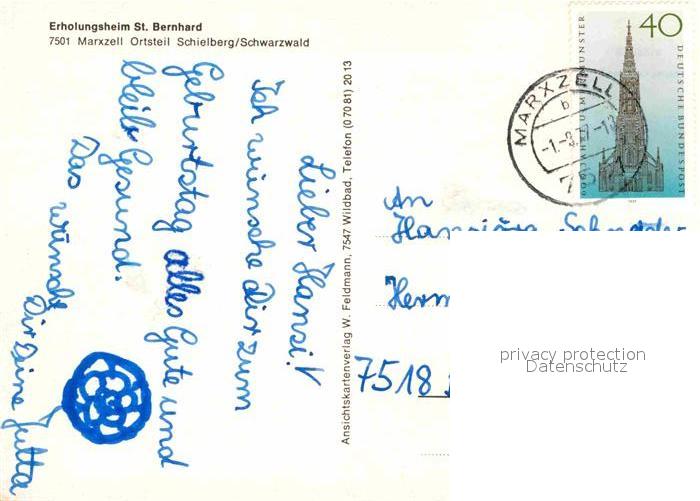 Erholungsheim St. Bernhard
7501 Marxzell Ortsteil Schielberg/Schwarzwald
Lieber Hansi!
Ich wünsche dir zum
Geburtstag alles Gute und
bleib Gesund.
Das wünscht
Dir Deine Jutta
Ansichtskartenverlag W. Feldmann, 7547 Wildbad, Telefon (0 70 81) 20 13
40
DEUTSCHE BUNDESPOST
MARXZELL
b
An
Herm
7518
privacy protection
Datenschutz